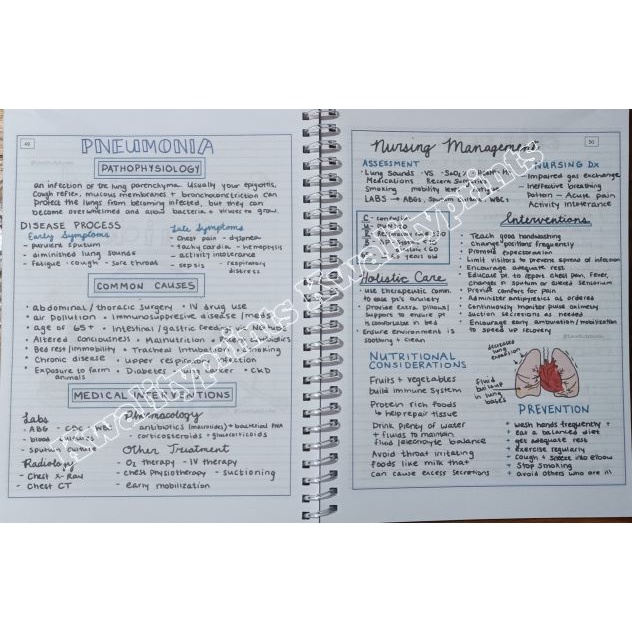 49
PNEUMONIA
PATHOPHYSIOLOGY
an infection of the lung parenchyma. Usually your epiglottis,
cough reflex, mucous membranes + bronchoconstriction can
protect the lungs from becoming infected, but they can
become overwhelmed and allow bacteria + viruses to grow.
DISEASE PROCESS
Early Symptoms
- purulent sputum
- diminished lung sounds
- fatigue - cough - sore throat
Late Symptoms
- Chest pain - dyspnea
- tachycardia - hemoptysis
- activity intolerance
- sepsis - respiratory
distress
COMMON CAUSES
• abdominal / thoracic surgery • IV drug use
• air pollution • Immunosuppressive disease / meds
• age of 65+ • Intestinal / gastric feeding
• Altered conciousness • Malnutrition
• Bed rest / immobility • Tracheal Intubation • Smoking
• Chronic disease • upper respiratory infection
• Exposure to farm • Diabetes • lung cancer • CKD
animals
MEDICAL INTERVENTIONS
Labs
- ABG - CBC - WBC
- blood cultures
- sputum culture
Radiology
- Chest X-Ray
- Chest CT
Pharmacology
- antibiotics (macrolides) + bacterial PNA
- corticosteroids + glucocorticoids
Other Treatment
- O2 therapy - IV therapy
- chest physiotherapy - suctioning
- early mobilization
50
Nursing Management
ASSESSMENT
• Lung Sounds • VS • SaO2
Medications Recent Surgeries
Smoking mobility level
LABS → ABGs, Sputum culture, WBCs
C - confusion
≥30
<60
years old
NURSING DX
Impaired gas exchange
- Ineffective breathing
pattern - Acute pain
Activity intolerance
Interventions
• Teach good handwashing
• Change positions frequently
• Promote expectoration
• Limit visitors to prevent spread of infection
• Encourage adequate rest
• Educate pt. to report chest pain, fever,
changes in sputum or altered sensorium
• Provide comfort for pain
• Administer antipyretics as ordered
• Continuously monitor pulse oximetry
• Suction secretions as needed
• Encourage early ambulation/mobilization
to speed up recovery
Holistic Care
• use therapeutic comm.
to ease pt's anxiety
Provide extra pillows/
support to ensure pt
is comfortable in bed
Ensure environment is
soothing + clean
NUTRITIONAL
CONSIDERATIONS
Fruits + vegetables
build immune system
Protein rich foods
↳ help repair tissue
Drink plenty of water
+ fluids to maintain
fluid/electrolyte balance
Avoid throat irritating
foods like milk that
can cause excess secretions
decreased
lung
expansion
Fluid
buildup
in lung
bases
PREVENTION
+ wash hands frequently
+ eat a balanced diet
+ get adequate rest
+ exercise regularly
+ cough + sneeze into elbow
+ Stop smoking
+ avoid others who are ill
Kwalityprints Kwalityprints Kwalityprints